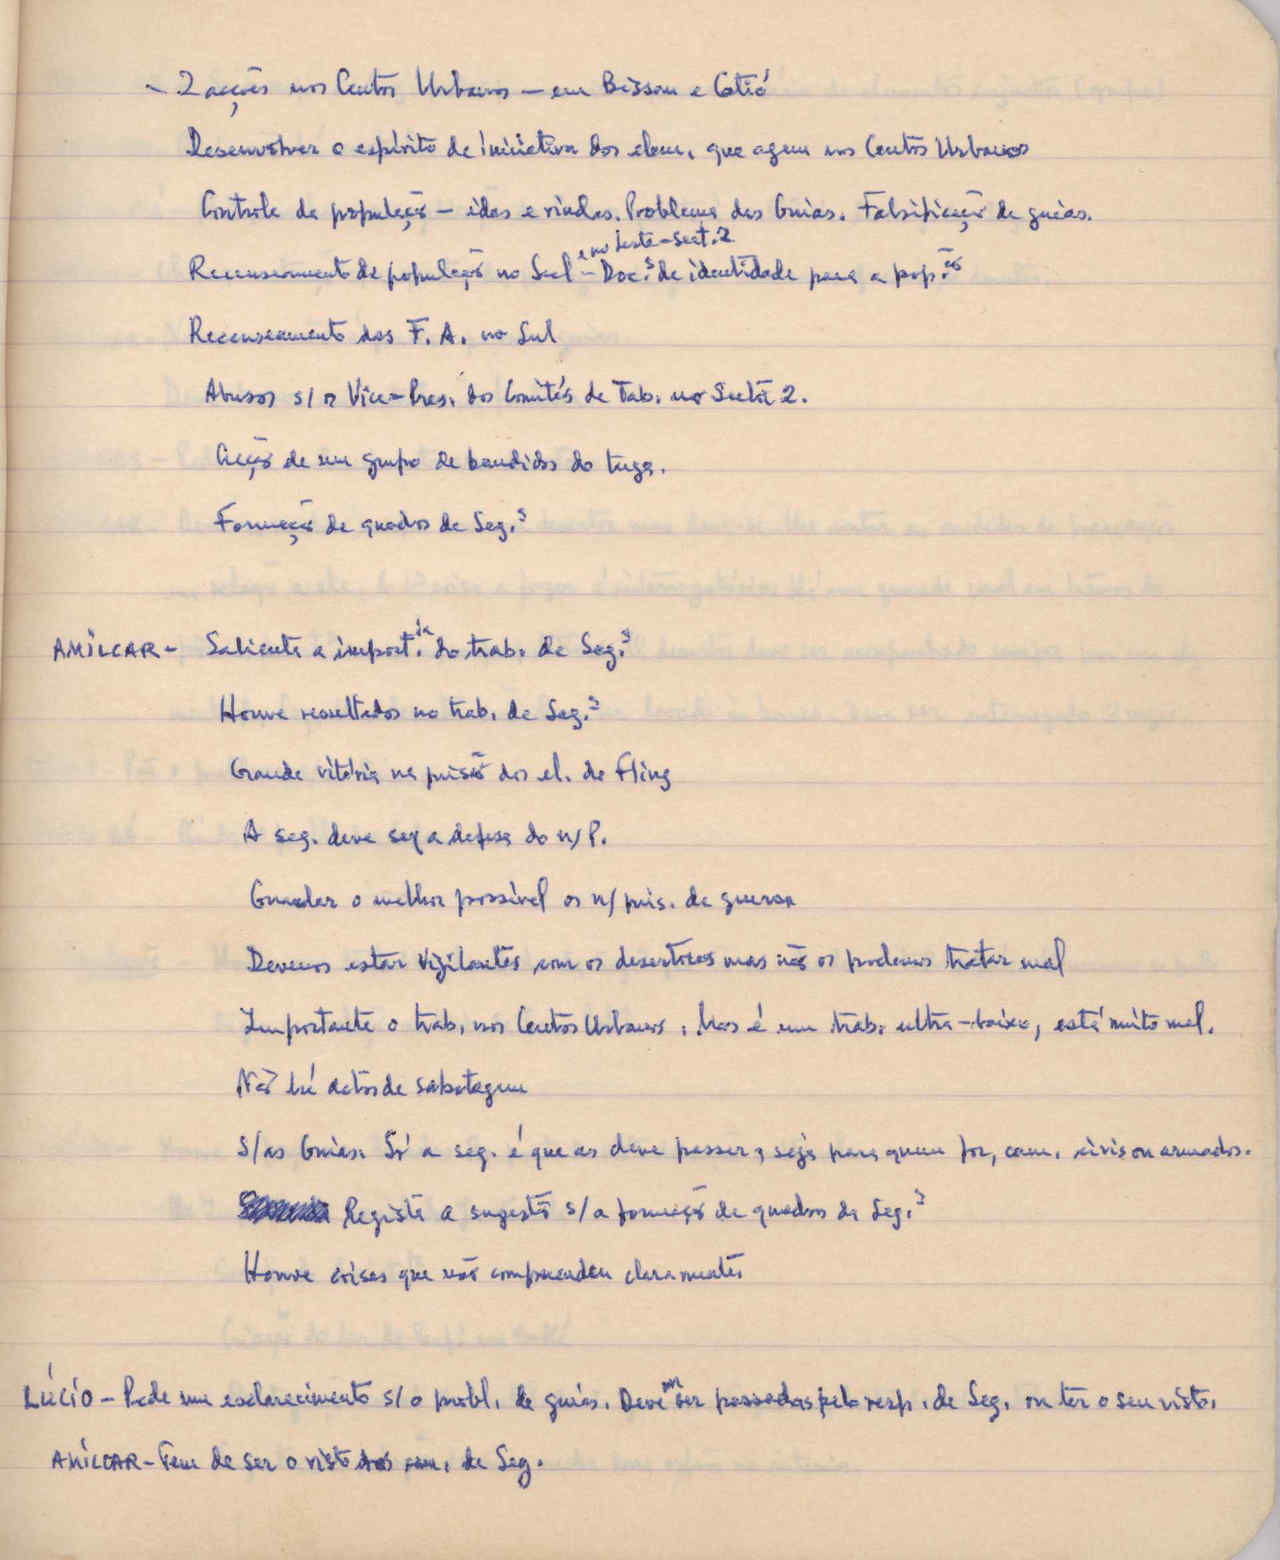 - 2 acções nos Centos Urbanos - em Bissau e Catió
Desenvolver o espírito de iniciativa dos elem. que agem nos Centos Urbanos
Controle da população - idas e vindas. Problema das Guias. Falsificação de guias.
e no Leste-Sect. 2
Recenseamento de população no Sul - Doc.s de identidade para a pop.ão
Recenseamento das F. A. no Sul
Abusos s/ o Vice-Pres. dos Comités de Tab. no Sector 2.
Acção de um grupo de bandidos do tuga.
Formação de quados de Seg.ª
AMÍLCAR - Salienta a import.ia do trab. de Seg.ª
Houve resultados no trab. de Seg.ª
Grande vitória na prisão dos el. da Fling
A seg. deve ser a defesa do n/P.
Guardar o melhor possível os n/ pris. de guerra
Devemos estar vigilantes com os desertores mas não os podemos tratar mal
Importante o trab. nos Centos Urbanos. Mas é um trab. ultra-baixo, está muito mal.
Não há actos de sabotagem
S/as Guias. Só a seg. é que as deve passar, seja para quem for, cam. civis ou armados.
Regista a sugestão s/ a formação de quadros da Seg.ª
Houve coisas que não compreendeu claramente.
LÚCIO - Pede um esclarecimento s/ o probl. de guias. Devem ser passadas pelo resp. de Seg. ou ter o seu visto.
AMÍLCAR - Tem de ser o visto dos cam. de Seg.